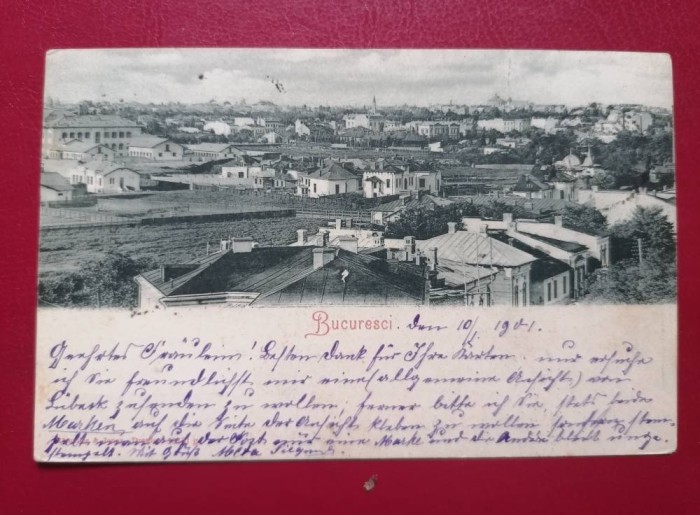 Bucuresci. den 10/ 1901.
Geehrtes Fräulein! Besten Dank für Ihre Karten und ersuche
ich Sie freundlichst mir eine (allgemeine Ansicht) von
Lübeck zusenden zu wollen, ferner bitte ich Sie, stets beide
Marken auf die Seite der Ansicht kleben zu wollen, sonst stem-
pelt man auf der Post nur eine Marke und die Andere bleibt unge-
stempelt. Mit Gruss